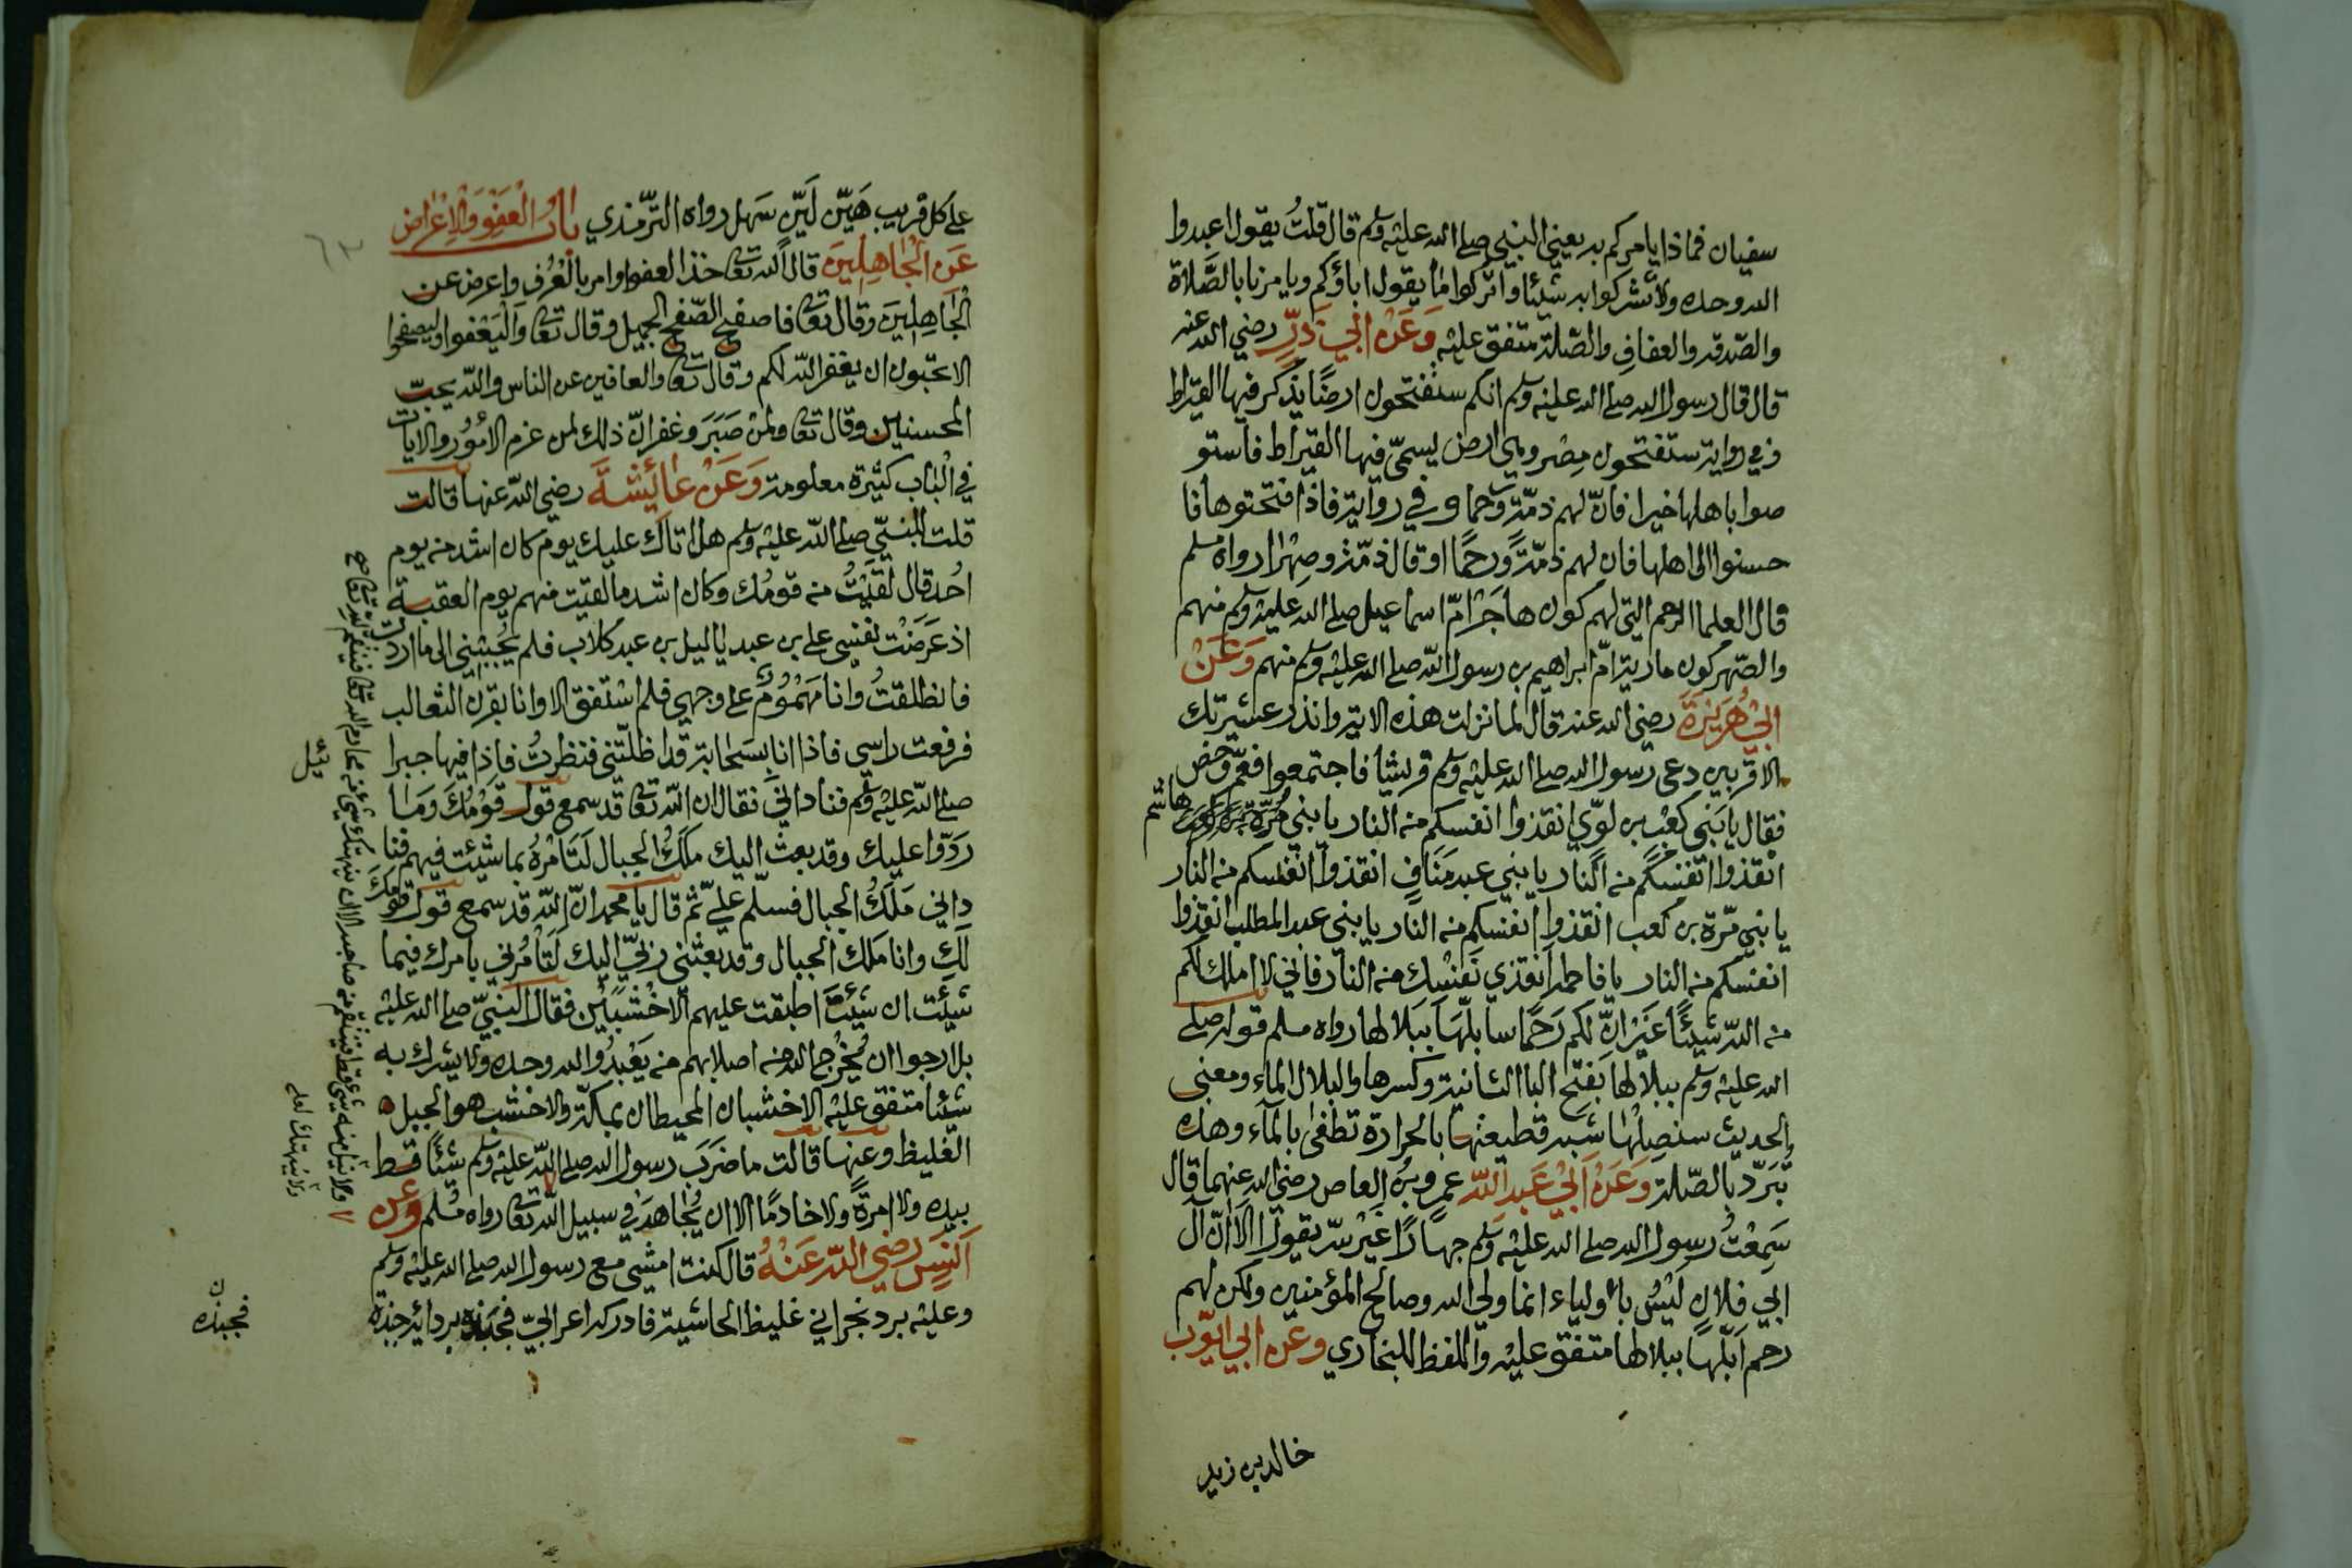 سفيان فماذا يامركم به يعني النبي صلى الله عليه وسلم قال قلتُ يقول اعبدوا
الله وحده ولا تشركوا به شيئا واتركوا ما يقول اباؤكم ويامرنا بالصَّلاة
والصّدقه والعفافِ والصّلة متفق عليْه وَعَنْ ابي ذرٍّ رضي الله عنه
قال قال رسول الله صلى الله عليْه وسلم انكم ستفتحون ارضًا يُذكر فيها القيراط
وفي رواية ستفتحون مِصْر وهي ارض يسمّى فيها القيراط فاستو
صوا باهلها خيرا فانّ لهم ذمّةً ورحما وفي رواية فاذا افتحتوها فا
حسنوا الى اهلها فان لهم ذمّةً ورحمًا او قال ذمّة وصِهْرًا رواه مسلم
قال العلما الرحم التي لهم كون هاجَرْ امّ اسماعيل صلى الله عليْه وسلم منهم
والصّهر كون مارية امّ ابراهيم بن رسول الله صلى الله عليْه وسلم منهم وَعَنْ
ابيْ هُرَيْرَةَ رضي الله عنه قال لما نزلت هذه الاية وانذر عشيرتك
الاقربين دعى رسول الله صلى الله عليْه وسلم قريشا فاجتمعوا فعمّ وخصّ
فقال يا بَني كعْب بن لوّي انقذوا انفسكم من النار يا بني مُرّة بن كعب هاشم
انقذوا انفسكم من النار يا بني عبد مَنَافٍ انقذوا انفسكم من النار
يا بني مرّة بن كعب انقذوا انفسكم من النار يا بني عبد المطلب انقذوا
انفسكم من النار يا فاطمه انقذي نفسْك من النار فاني لا املك لكم
من الله شيئًا غَيْر انّ لكم رَحمًا سابلّهَا ببَلالها رواه مسلم قوله صلى
الله عليْه وسلم ببلالها بفتح البا الثانية وكسرها والبلال الماء ومعنى
الحديث سنصِلُها شبه قطيعتها بالحرارة تطفى بالماء وهذه
تبَرّد بالصّلة وَعَنْ ابيْ عَبد الله عمرو بن العاص رضي الله عنهما قال
سَمِعْتُ رسول الله صلى الله عليْه وسلم جهارًا غَيْر سّر يقول الا انّ آل
ابي فلانٍ ليْسُ باولياء انما ولي الله وصالح المؤمنين ولكن لهم
رحم اَبلّها ببلالها متفق عليْه واللفظ للبخاري وعن ابي ايّوب
خالد بن زيد
على كل قريب هَيّن ليّن سَهل رواه التّرمذي باب العَفْوِ وَالإعْراض
عَن الْجَاهِلِينَ قال الله تعالى خذ العفو وامر بالعُرْف واعرض عن
الجَاهِلِينَ وقال تعالى فاصفح الصّفح الجميل وقال تعالى وَلْيَعْفوا وليصفحوا
الا تحبّون ان يغفر الله لكم وقال تعالى والعافين عن الناس والله يحبّ
المحسنين وقال تعالى ولمن صَبَرَ وغفر انّ ذلك لمن عزم الأمُوْر والايات
في البْاب كثيْرة معلومة وَعَنْ عَائِشَةَ رضي الله عنها قالت
قلت للنبيّ صلى الله عليْه وسلم هل اتاك عليك يوم كان اشد من يوم
اُحُد قال لقيْتُ من قومُك وكان اشد ما لقيت منهم يوم العقبة
اذ عَرَضْت نفسي على بن عبد ياليل بن عبد كلاب فلم يُجبْني الى ما اردت
فانطلقتُ وانا مَهْمُومٌ على وجهي فلم استفق الا وانا بقرْن الثعالب
فرفعت راسي فاذا انا بسَحابة قد اظلّتني فنظرتُ فاذا فيها جبرا
صلى الله عليْه وسلم فناداني فقال ان الله تعالى قد سمع قول قوْمُكَ وَمَا
رَدّوا عليك وقد بعث اليك مَلَكُ الجبال لتَامُرهُ بما شئت فيهم فنا
داني مَلَكُ الجبال فسلّم عليّ ثم قال يا محمد انّ الله قد سمع قول قومك
لك وانا مَلَك الجبال وقد بعثني ربيّ اليك لتأمُرني بامرك فيما
شئت ان شئت اطبقت عليهم الاخْشبيْن فقال النبيّ صلى الله عليْه
بل ارجوا ان يُخْرج الله من اصلابهم من يَعْبدُوا الله وحده ولا يشرك به
شيئا متفق عليْه الاخشبان المحيطان بمكّة والاخشب هو الجبل
الغليظ وعنها قالت ما ضرَبَ رسول الله صلى الله عليْه وسلم شيئًا قط
بيده ولا امرةً ولا خادمًا الا ان يُجاهدَ في سبيل الله تعالى رواه مُسْلم وعن
اَنَسٍ رضي الله عَنْهُ قال كنت امشي مع رسول الله صلى الله عليْه وسلم
وعليْه برد نجراني غليظ الحاشية فادركه اعرابيّ فجبذه بردائه جبذة
٦٣
ئيل
ولا نيل منه شيء قط فينتقم من صاحبه الا ان ينتهك شيء من محارم الله تعالى فينتقم لله تعالى صح
فجبذه